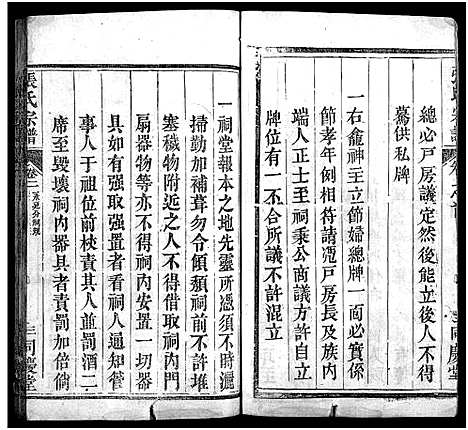 總必戶房議定然後能立後人不得
驀供私牌
一右龕神主立節婦總牌一面必實係
節孝年例相符請冕戶房長及族内
端人正士至祠秉公商議方許自立
牌位有一不合所議不許混立
同慶堂
一祠堂報本之地先靈所憑須不時灑
掃勤加補葺勿令傾頹祠前不許堆
塞穢物附近之人不得放畜祠内門
扇器物等亦不得祠内安置一切器
具如有強取強置者看祠人通知管
事人于位前梜責其人並罰酒二
席至毀壞祠内器具者責罰加倍倘
張氏宗譜
卷二
同慶堂